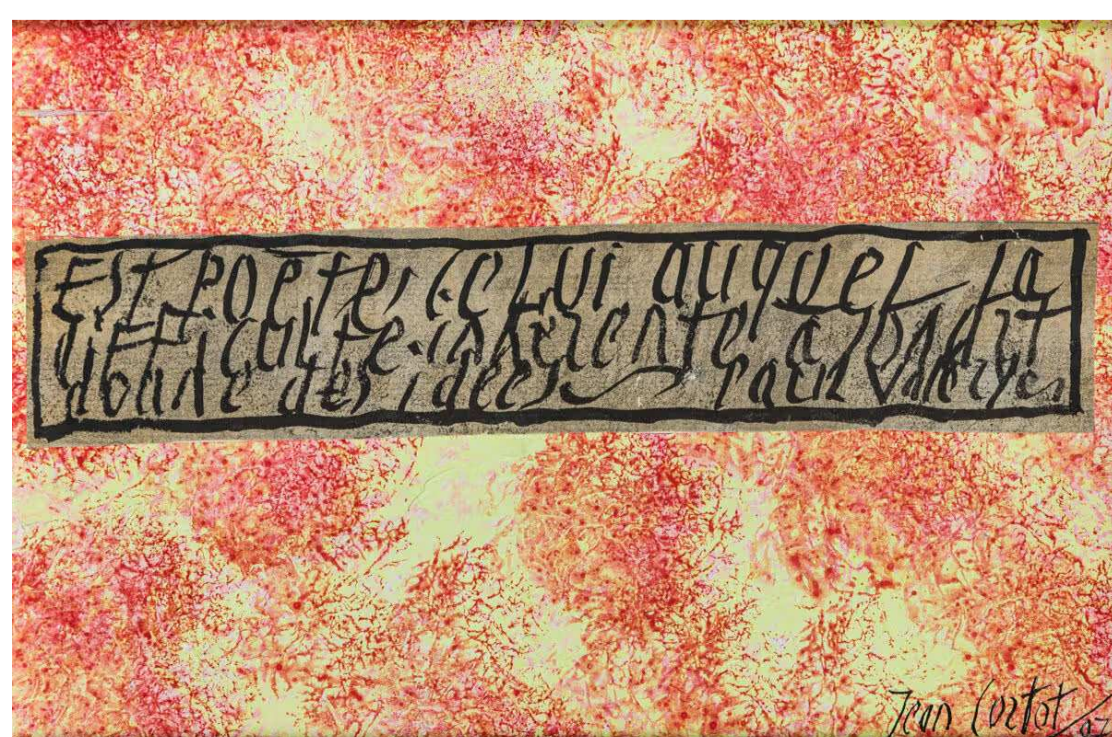 EST POÈTE, CELUI AUQUEL LA
DIFFICULTÉ INHÉRENTE, À SON ART
donne des idées Paul Valéry
Jean Cortot / 07